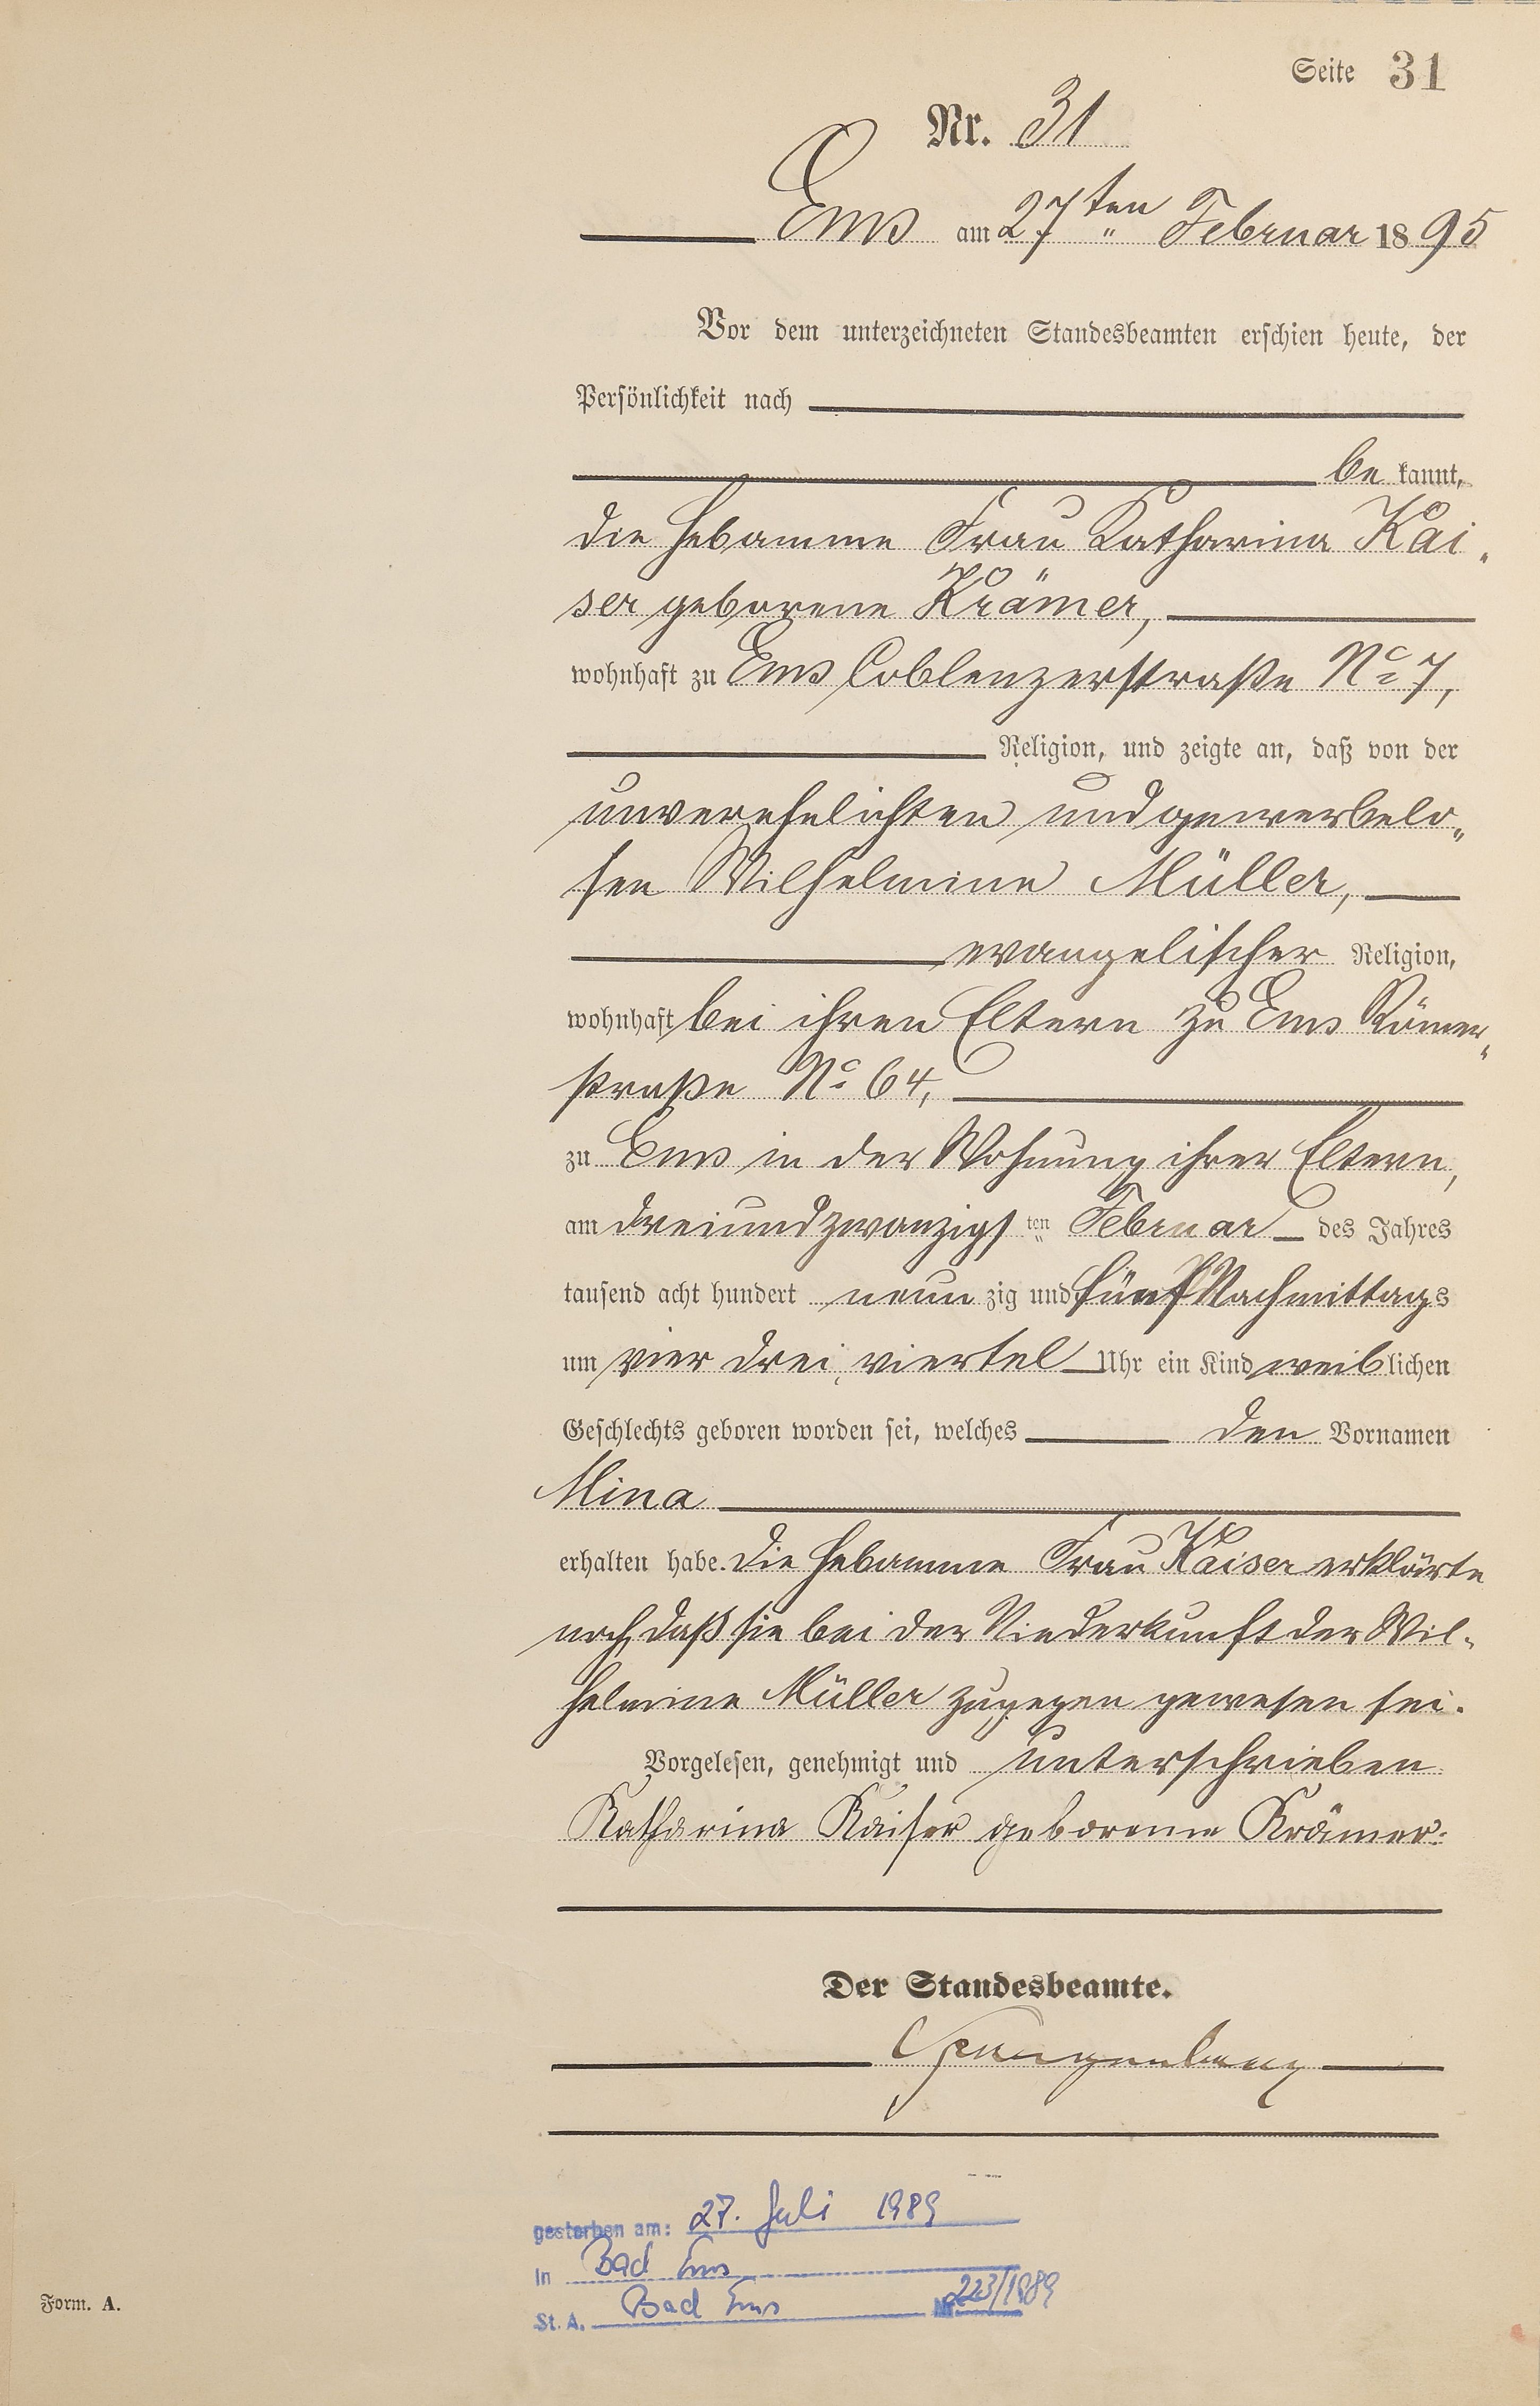 Seite 31
Nr. 31
Ems am 27ten Februar 1895
Vor dem unterzeichneten Standesbeamten erschien heute, der
Persönlichkeit nach
bekannt,
die Hebamme Frau Katharina Kai-
ser geborene Krämer,
wohnhaft zu Ems Coblenzerstraße No 7,
Religion, und zeigte an, daß von der
unverehelichten und gewerbelo-
sen Wilhelmine Müller,
evangelischer Religion,
wohnhaft bei ihren Eltern zu Ems Römer-
straße No 64,
zu Ems in der Wohnung ihrer Eltern,
am dreiundzwanzigsten Februar des Jahres
tausend acht hundert neunzig und fünf Nachmittags
um vier drei viertel Uhr ein Kind weiblichen
Geschlechts geboren worden sei, welches den Vornamen
Mina
erhalten habe. Die Hebamme Frau Kaiser erklärte
noch, daß sie bei der Niederkunft der Wil-
helmine Müller zugegen gewesen sei.
Vorgelesen, genehmigt und unterschrieben
Katharina Kaiser geborene Krämer.
Der Standesbeamte.
gestorben am: 27. Juli 1989
in Bad Ems
St. A. Bad Ems Nr. 223/1989
Form. A.